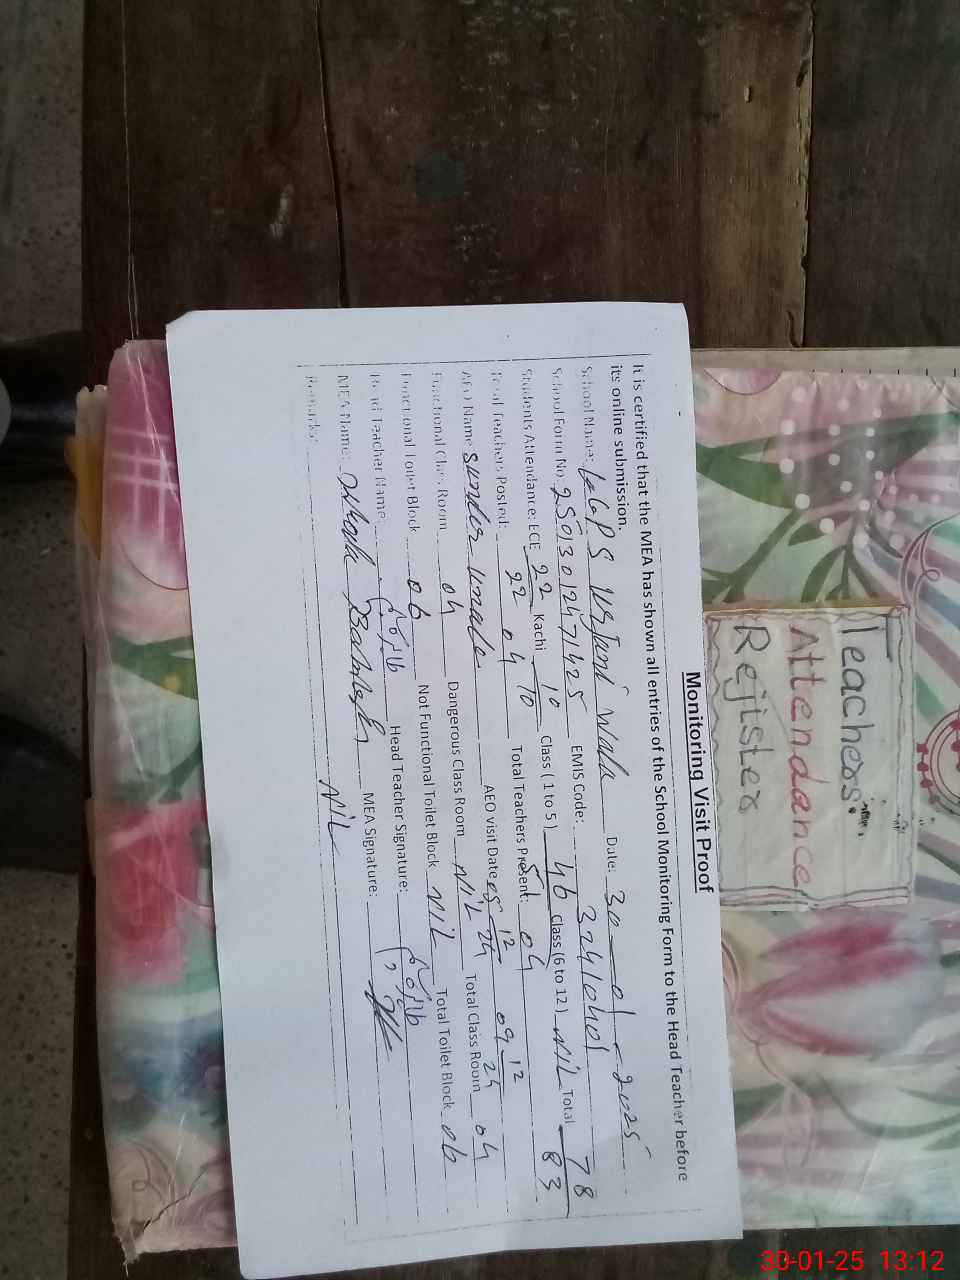 Teachers
Attendance
Rejister
Monitoring Visit Proof
It is certified that the MEA has shown all entries of the School Monitoring Form to the Head Teacher before
its online submission.
School Name: GGPS Date: 30-01-2025
School Form No. 25013012471425 EMIS Code: 32410401
Students Attendance: ECE 22/22 Kachi 10/10 Class (1 to 5) 46/51 Class (6 to 12) NIL Total 78/83
Total Teachers Posted: 04 Total Teachers Present: 04
AEO Name AEO visit Date 05-12-24 09-12-24
Functional Class Room 04 Dangerous Class Room NIL Total Class Room 04
Functional Toilet Block 06 Not Functional Toilet Block NIL Total Toilet Block 06
Head Teacher Name: Head Teacher Signature:
MEA Name: MEA Signature:
Remarks: NIL
30-01-25 13:12